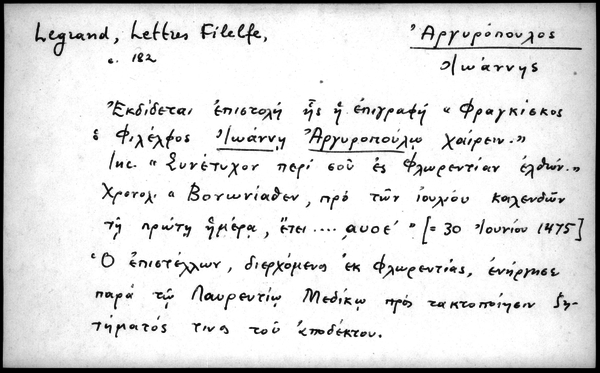 Legrand, Lettres Filelfe,
Ἀργυρόπουλος
c. 182
Ἰωάννης
Ἐκδίδεται ἐπιστολή ἧς ἡ ἐπιγραφή « Φραγκίσκος
ὁ Φιλέλφος Ἰωάννῃ Ἀργυροπούλῳ χαίρειν.»
Inc. « Συνέτυχον περί σοῦ ἐς Φλωρεντίαν ἐλθών.»
Χρονολ. « Βονωνίαθεν, πρό τῶν ἰουλίου καλενδῶν
τῇ πρώτῃ ἡμέρᾳ, ἔτει .... ͵αυοέ » [= 30 Ἰουνίου 1475]
Ὁ ἐπιστέλλων, διερχόμενος ἐκ Φλωρεντίας, ἐνήργησε
παρά τῷ Λαυρεντίῳ Μεδίκῳ πρός τακτοποίησιν ζη-
τήματός τινος τοῦ ἀποδέκτου.